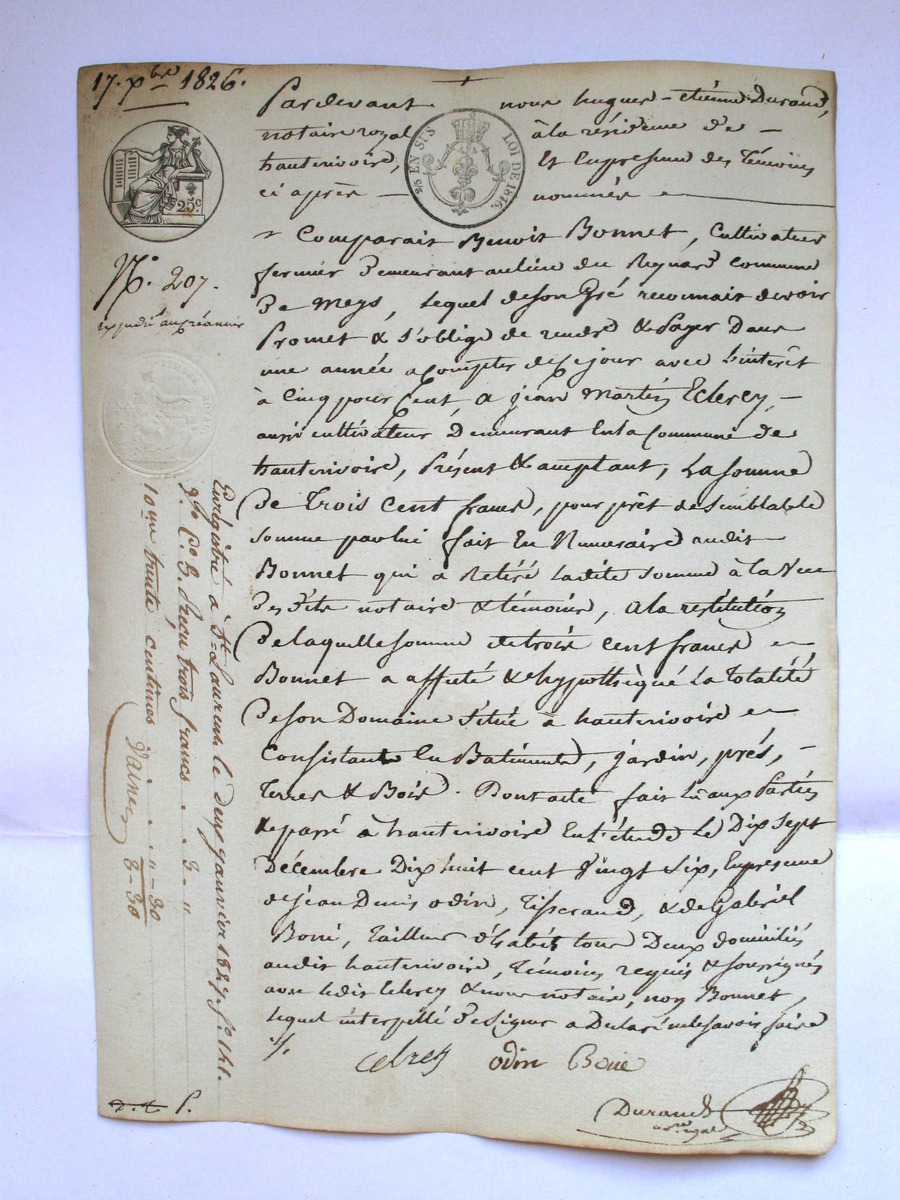 17. Xbre 1826.
25c.
N°. 207.
expédié au créancier
Pardevant nous hugues-étienne Durand,
notaire royal à la résidence de -
hauterivoire, et en presence des témoins
ci après - nommés
2/5 EN SUS LOI DE 1816.
Comparait Benoit Bonnet, Cultivateur
fermier demeurant au lieu du Reynard commune
de meys, lequel de son Gré reconnait devoir
Promet & s'oblige de rendre & Payer Dans
une année a compter de ce jour avec l'intérêt
à Cinq pour Cent, a jean Martin Eclerey, -
aussi cultivateur Demeurant en la Commune de
hauterivoire, Présent & acceptant, La somme
De Trois Cent francs, pour prêt de semblable
somme par lui fait En Numeraire audit
Bonnet qui a Retiré ladite somme à la Vue
Des dits notaire & témoins, a la restitution
De laquelle somme de trois cent francs
Bonnet a affecté & hypothéqué La Totalité
De son Domaine situé à hauterivoire
Consistant En Batiments, jardin, prés, -
Terres & Bois. Dont acte fait lu aux Parties
& passé à hauterivoire En l'étude Le Dix Sept
Décembre Dix huit cent Vingt Six, En presence
de jean Denis odin, Tisserand, & de Gabriel
Boné, Tailleur d'habits tous Deux domiciliés
audit hauterivoire, témoins requis & soussignés
avec ledit Eclerey & nous notaire, non Bonnet,
lequel interpellé de Signer a Declaré ne le savoir faire
odin Boné
Durand
nre royal
Enrégistré à St Laurent le deux janvier 1827. fo 161.
Vo Ce 3. Reçu trois francs . . 3 - "
10eme trente centimes . . . " - 30
3 - 30